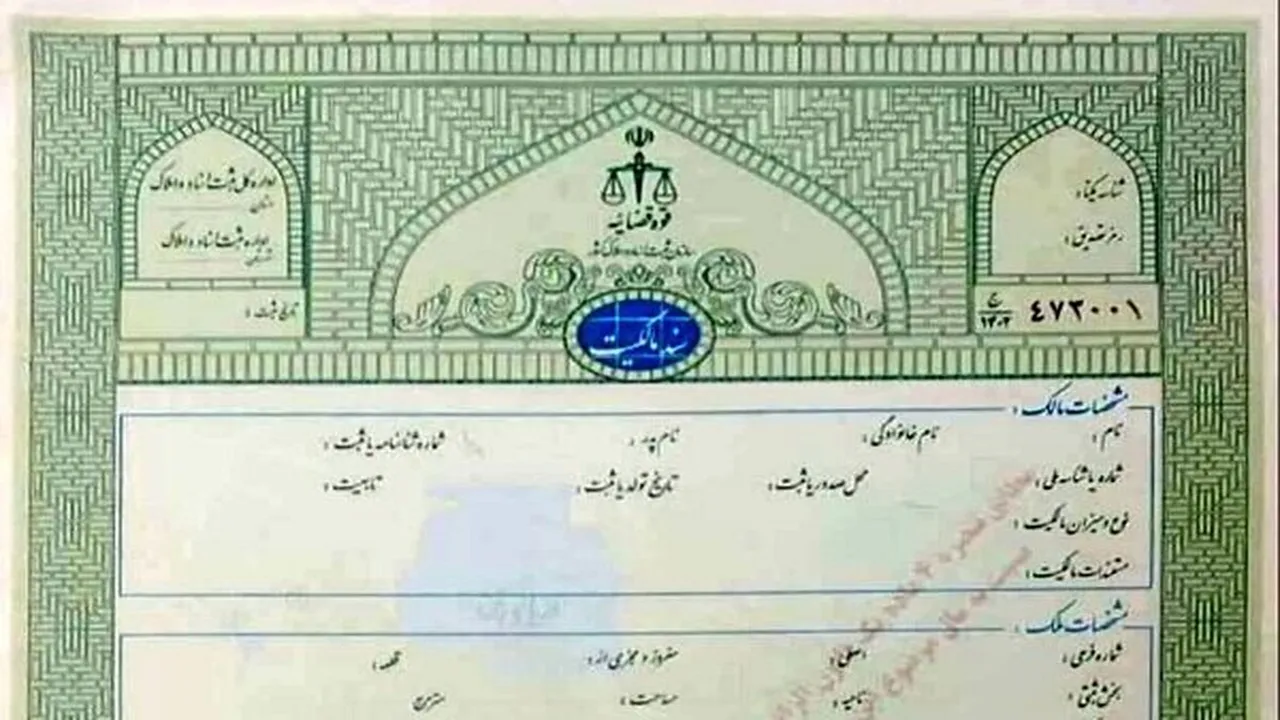 قوه قضائیه
سازمان ثبت اسناد و املاک کشور
سند مالکیت
شناسه یکتا :
رمز تصدیق :
۴۷۳۰۰۱
ج
۱۴۰۲
اداره کل ثبت اسناد و املاک
استان
اداره ثبت اسناد و املاک
تاریخ ثبت :
مشخصات مالک :
نام : نام خانوادگی : نام پدر : شماره شناسنامه یا ثبت :
شماره یا شناسه ملی : محل صدور یا ثبت : تاریخ تولد یا ثبت : تابعیت :
نوع و میزان مالکیت :
مستندات مالکیت :
مشخصات ملک :
شماره فرعی : اصلی : مفروز و مجزی از : قطعه :
بخش ثبتی : ناحیه : مساحت : مترمربع